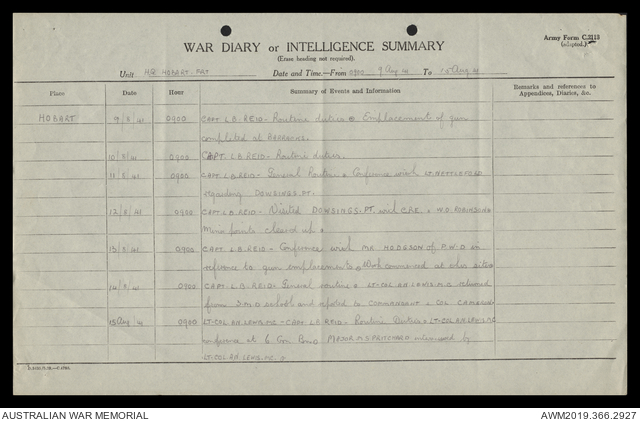 Army Form C.2118
(adapted.)
WAR DIARY OR INTELLIGENCE SUMMARY
(Erase heading not required).
Unit HQ. HOBART. Date and Time.—From 0900 9 Aug 41 To 15 Aug 41
Place Date Hour Summary of Events and Information Remarks and references to Appendices, Diaries, &c.
HOBART 9/8/41 0900 CAPT. L.B. REID - Routine duties Emplacement of gun
completed at BARRACKS.
10/8/41 0900 CAPT. L.B. REID - Routine duties.
11/8/41 0900 CAPT. L.B. REID - General Routine Conference with LT. NETTLEFOLD
regarding DOWSINGS. PT.
12/8/41 0900 CAPT. L.B. REID - Visited DOWSINGS. PT. with C.R.E. W.O. ROBINSON
Minor points cleared up
13/8/41 0900 CAPT. L.B. REID - Conference with MR. HODGSON of P.W.D. in
reference to gun emplacements Work commenced at other sites
14/8/41 0900 CAPT. L.B. REID - General routine LT-COL. A.H. LEWIS. M.C. returned
from school and reported to COMMANDANT COL.
15 Aug 41 0900 LT-COL. A.H. LEWIS. M.C. - CAPT. L.B. REID - Routine Duties LT-COL. A.H. LEWIS. M.C.
at 6 MAJOR M.S. PRITCHARD interviewed by
LT-COL. A.H. LEWIS. M.C.
AUSTRALIAN WAR MEMORIAL AWM2019.366.2927